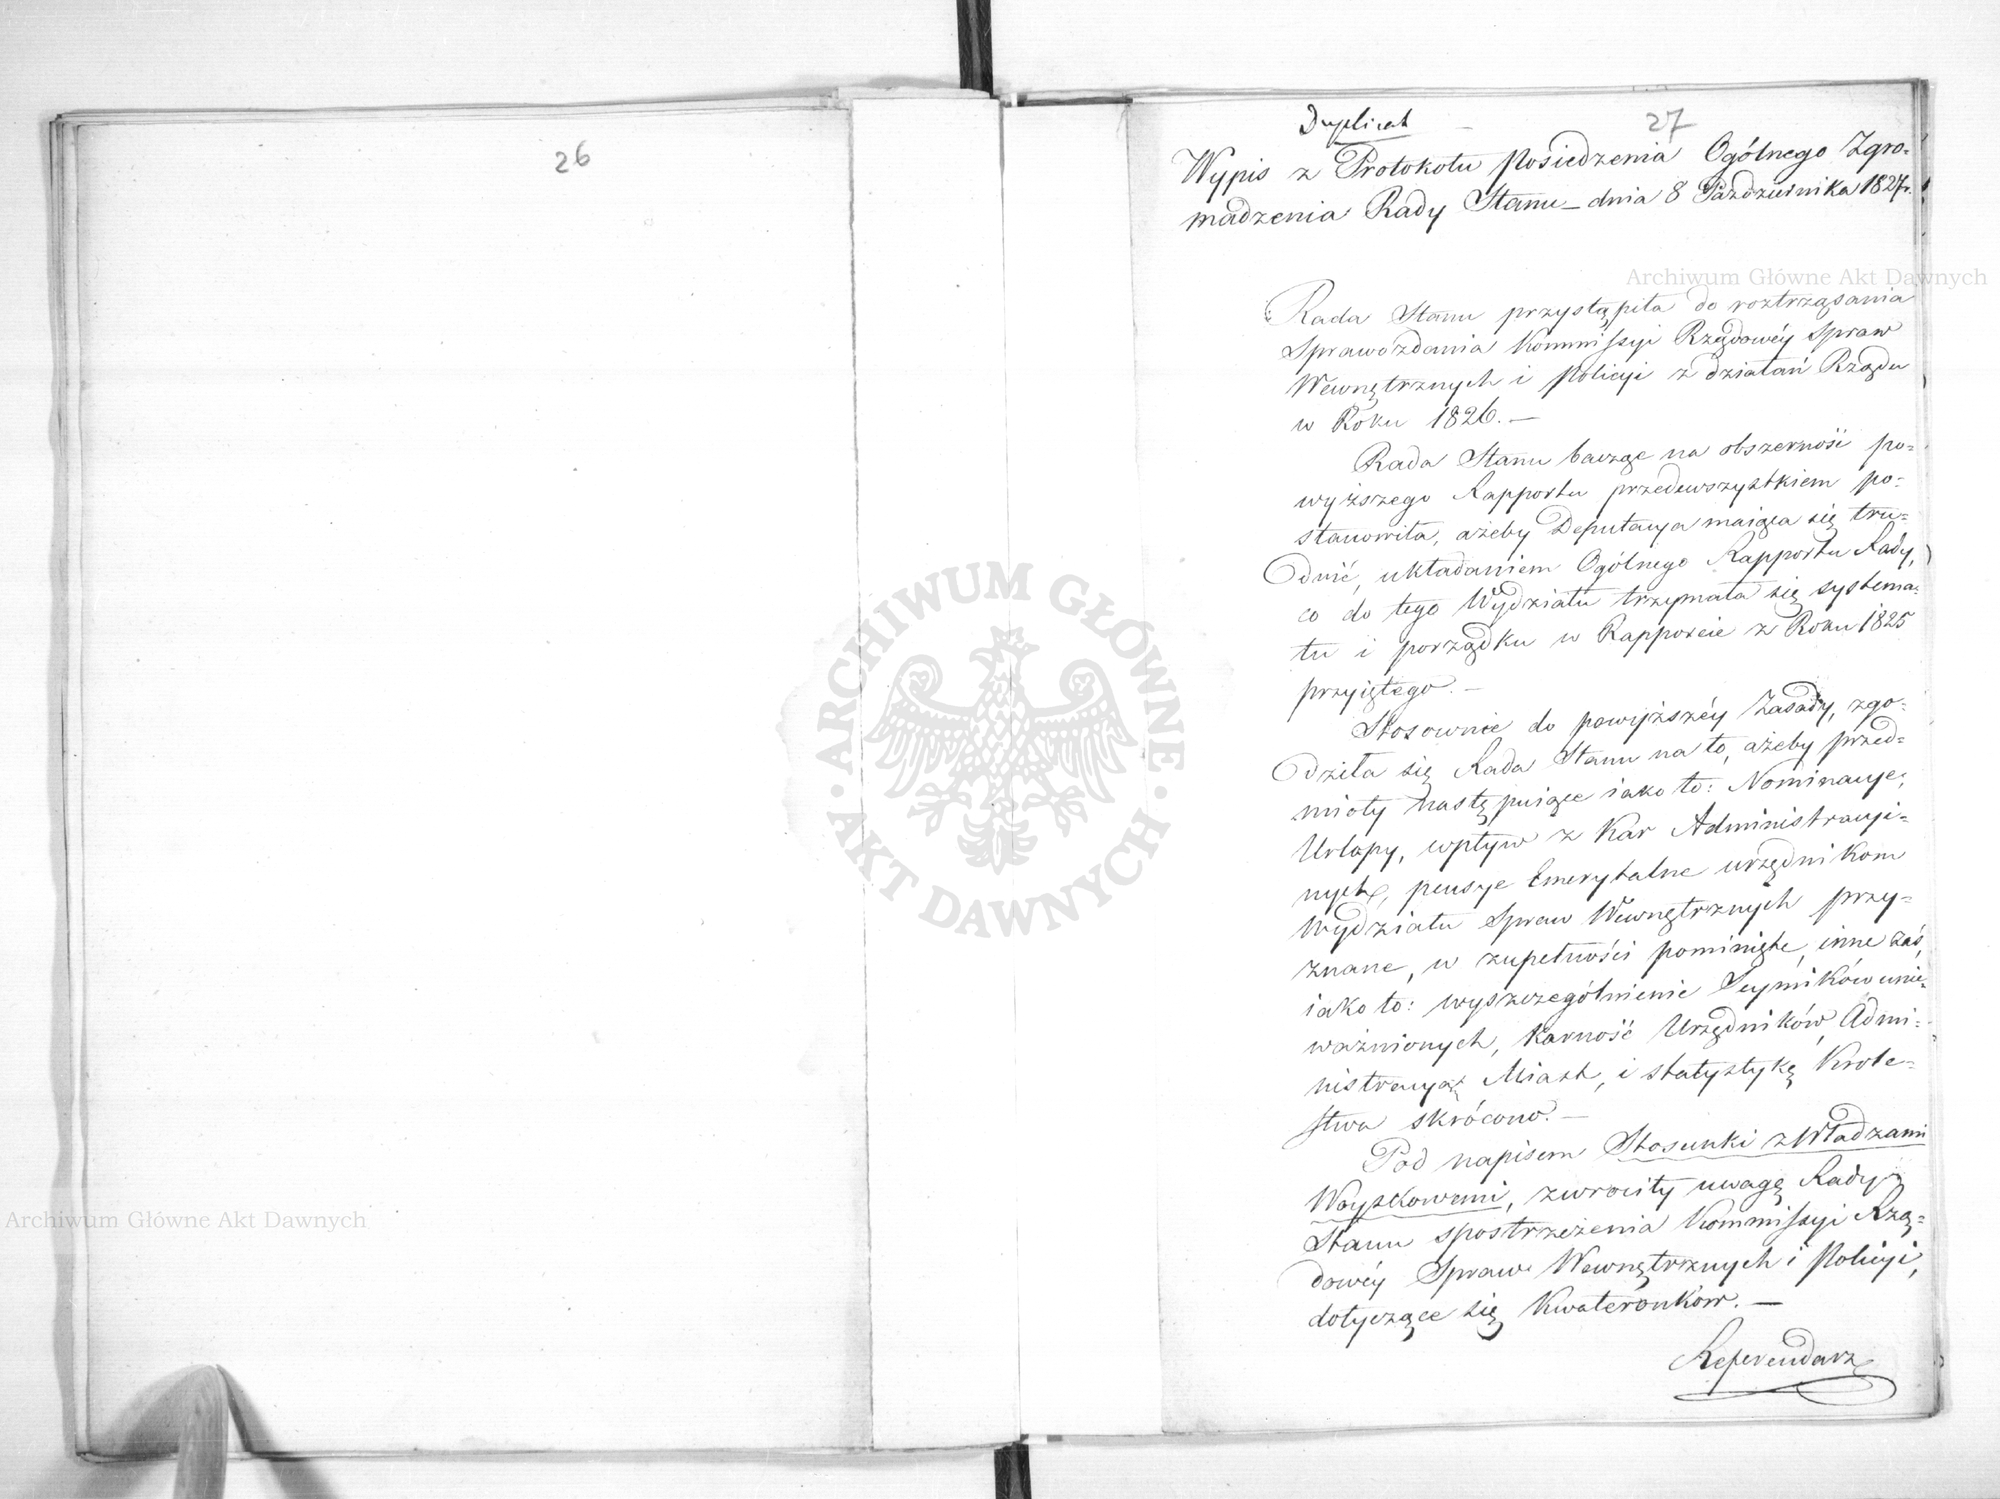 26
Duplicat
27
Wypis z Protokołu Posiedzenia Ogólnego Zgro-
madzenia Rady Stanu – dnia 8 Października 1827 r.
Archiwum Główne Akt Dawnych
Rada Stanu przystąpiła do roztrząsania
Sprawozdania Kommissyi Rządowéy Spraw
Wewnętrznych i Policyi z działań Rządu
w Roku 1826. –
Rada Stanu bacząc na obszerność po-
wyższego Rapportu przedewszystkiem po-
stanowiła, ażeby Deputacya maiąca się tru-
dnić układaniem Ogólnego Rapportu Rady,
co do tego Wydziału trzymała się systema-
tu i porządku w Rapporcie z Roku 1825
przyiętego. –
Stosownie do powyższéy Zasady, zgo-
dziła się Rada Stanu na to, ażeby przed-
mioty następuiące iako to: Nominacye,
Urlopy, wpływ z Kar Administracyi-
nych, pensye Emerytalne urzędnikom
Wydziału Spraw Wewnętrznych przy-
znane, w zupełności pominięte, inne zaś,
iako to: wyszczególnienie Seymików unie-
ważnionych, Karność Urzędników, Admi-
nistracyą Miast, i statystykę Krole-
stwa skrócono. –
Pod napisem Stosunki z Władzami
Woyskowemi, zwróciły uwagę Rady
Stanu spostrzeżenia Kommissyi Rzą-
dowéy Spraw Wewnętrznych i Policyi,
dotyczące się Kwaterunków. –
Referendarz
ARCHIWUM GŁÓWNE
AKT DAWNYCH
Archiwum Główne Akt Dawnych